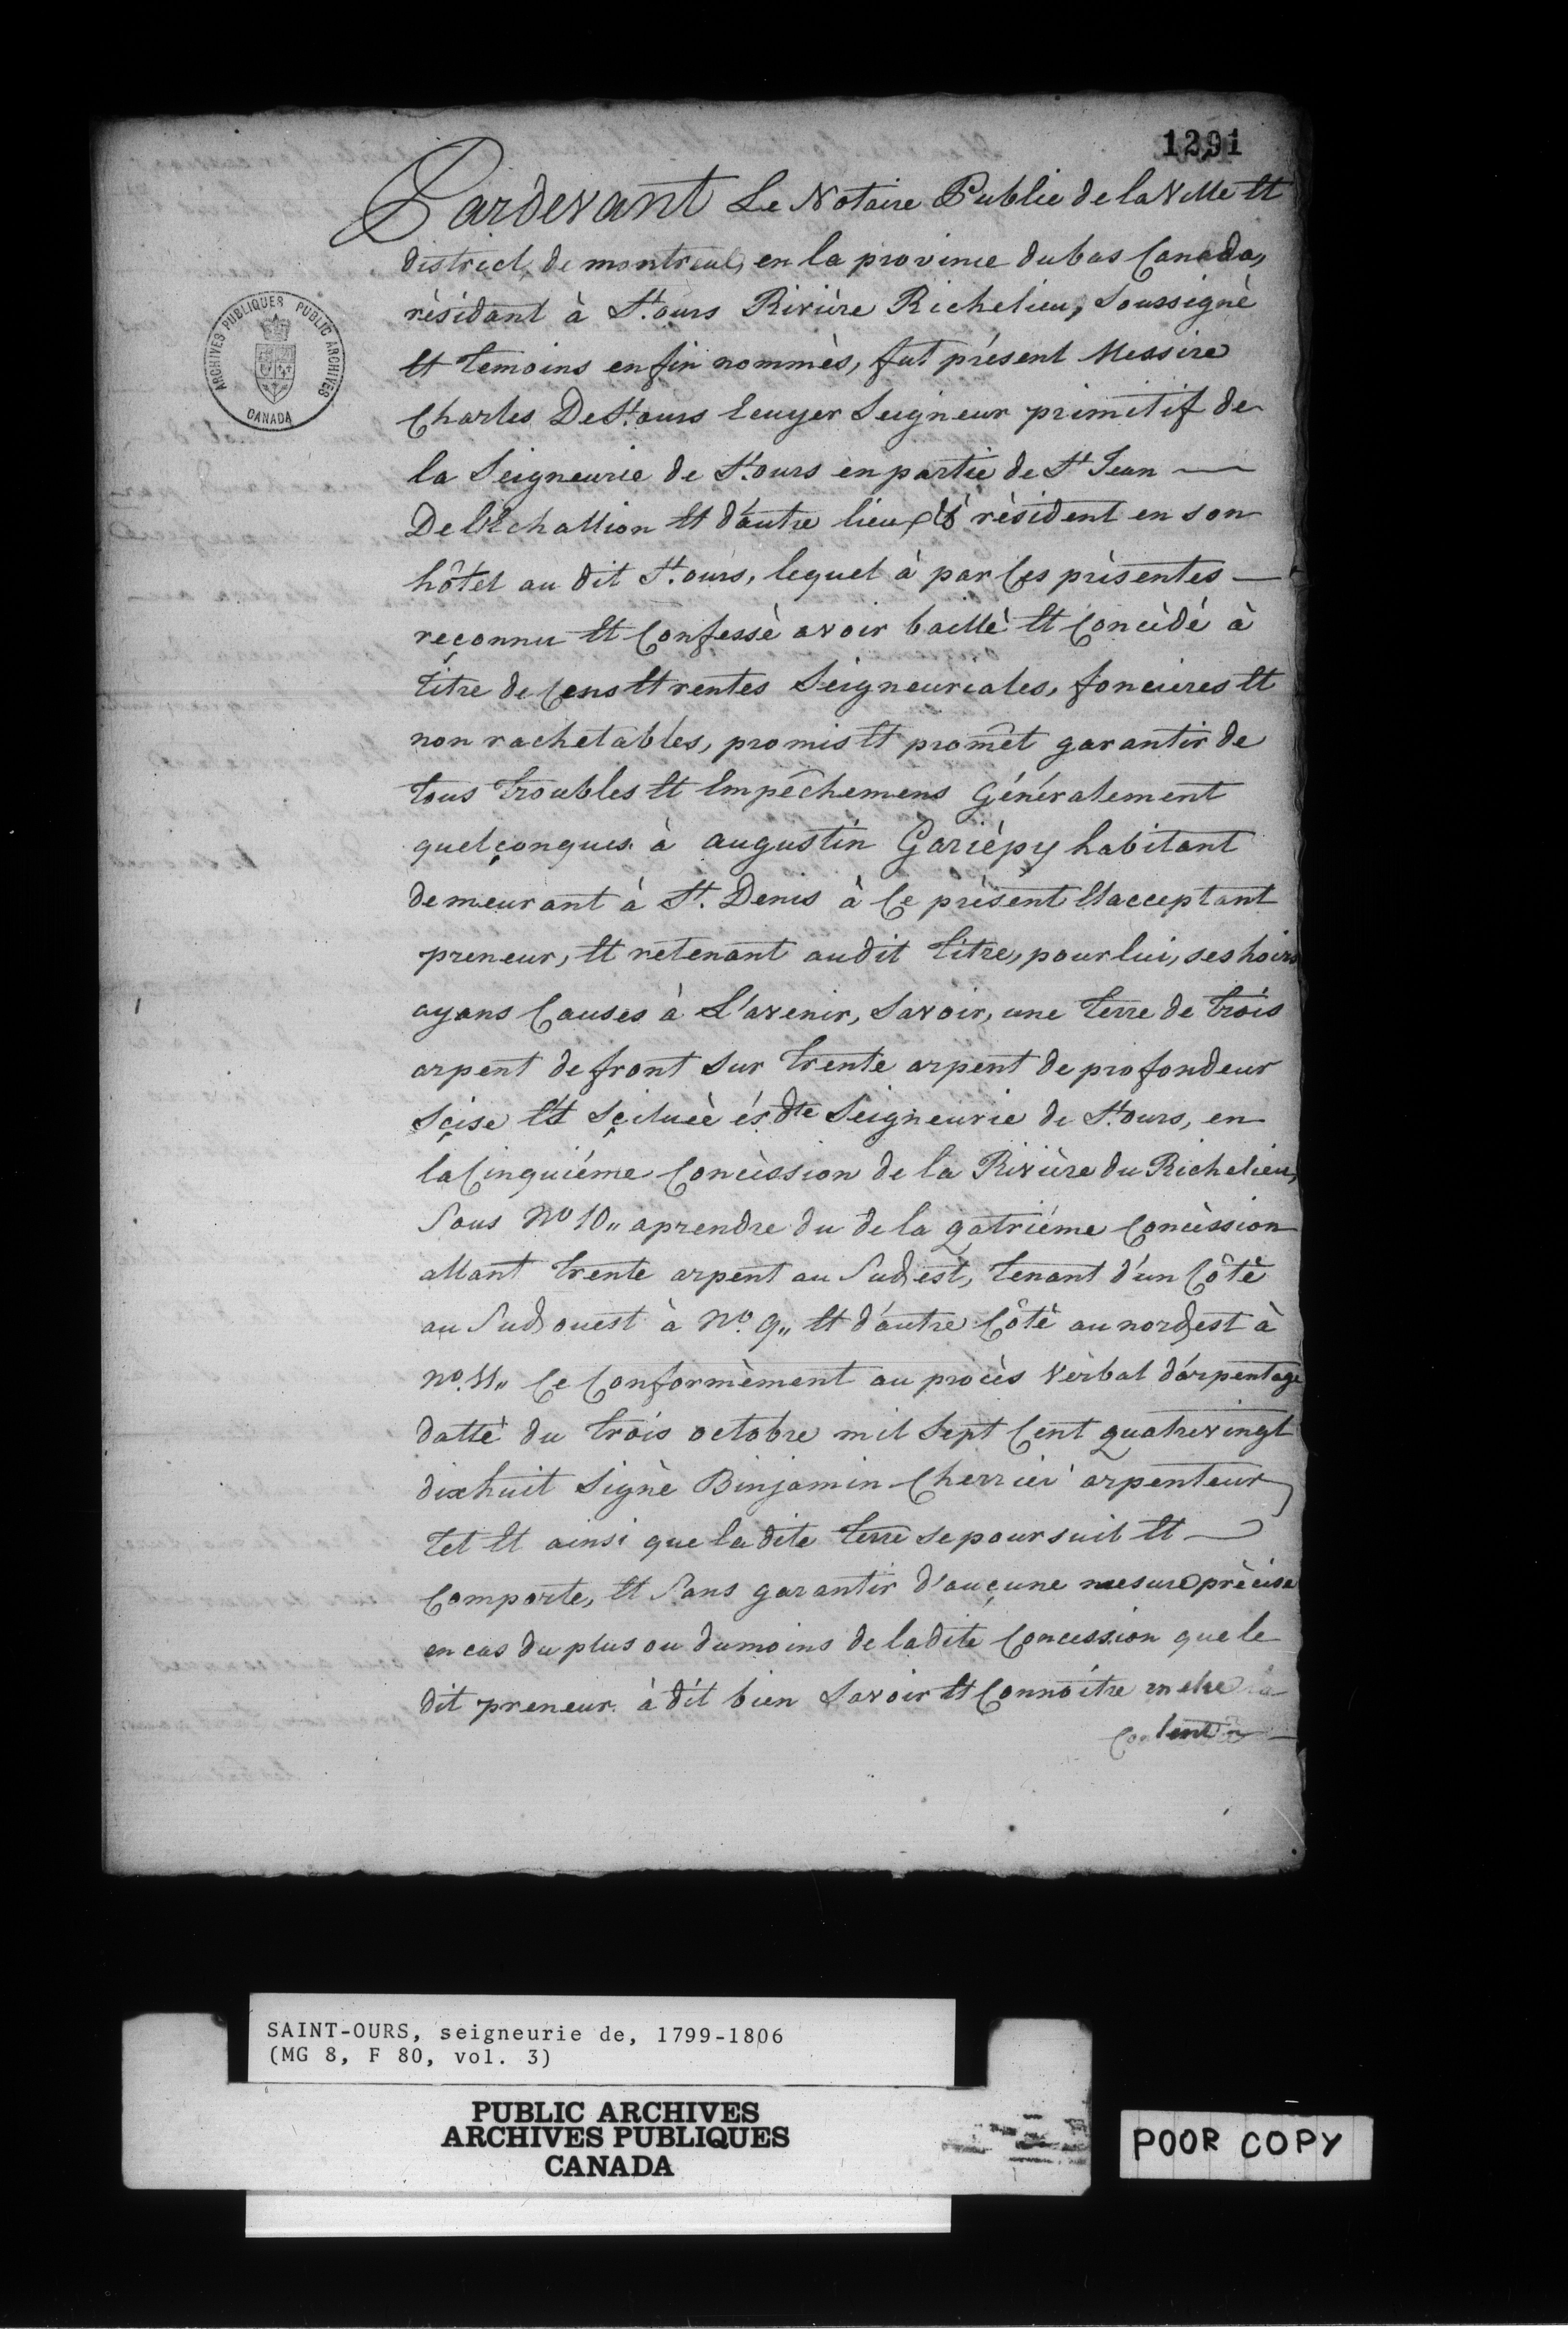 1291
Pardevant Le Notaire Public de la Ville Et
district de montreal, en la province du bas Canada,
rèsidant à St. ours Rivière Richelieu, Soussignè
Et temoins en fin nommès, fut présent Messire
Charles De St. ours Ecuyer Seigneur primitif de
la Seigneurie de St. ours en partie de St Jean
De l'Echallion Et d'autre lieux rèsident en son
hôtel au dit St. ours, lequel à par Ces prèsentes
reçonnu Et Confessè avoir baillè Et Concèdé à
titre de Cens Et rentes Seigneuriales, foncieres Et
non rachetablés, promis Et promêt garantir de
tous troubles Et Empêchemens Généralement
quelçonques à augustin Gariépy habitant
demeurant à St. Denis à Ce prèsent Et acceptant
preneur, Et retenant audit titre, pour lui, ses hoirs
ayans Causes à L'avenir, Savoir, une terre de trois
arpent de front Sur trente arpent de profondeur
Sçise Et Sçituèe és dte Seigneurie de St. ours, en
la Cinquiéme Concèssion de la Rivière du Richelieu,
Sous No 10,, aprendre du de la qatriéme Concèssion
allant trente arpent au Sudest, tenant d'un Côtè
au Sud ouest à No. 9,, Et d'autre Côtè au nordest à
No. 11,, Ce Conformèment au procès Vèrbal d'arpentage
dattè du trois octobre mil Sept Cent quatrevingt
dixhuit Signè Binjamin Cherrier arpenteur
tel Et ainsi que ladite terre se poursuit Et
Comporte, Et Sans garantir d'auçune mesure prècise
en cas du plus ou du moins de ladite Concession que le
dit preneur à dit bien Savoir Et Connoître
ARCHIVES PUBLIQUES PUBLIC ARCHIVES
CANADA
SAINT-OURS, seigneurie de, 1799-1806
(MG 8, F 80, vol. 3)
PUBLIC ARCHIVES
ARCHIVES PUBLIQUES
CANADA
POOR COPY